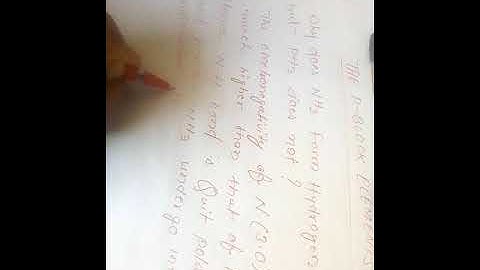 THE P-BLOCK ELEMENTS
Why does NH3 form Hydrogen
but PH3 does not ?
The electronegativity of N (3.0)
much higher than that of
N-H bond is Quit pola
NH3 undergo in